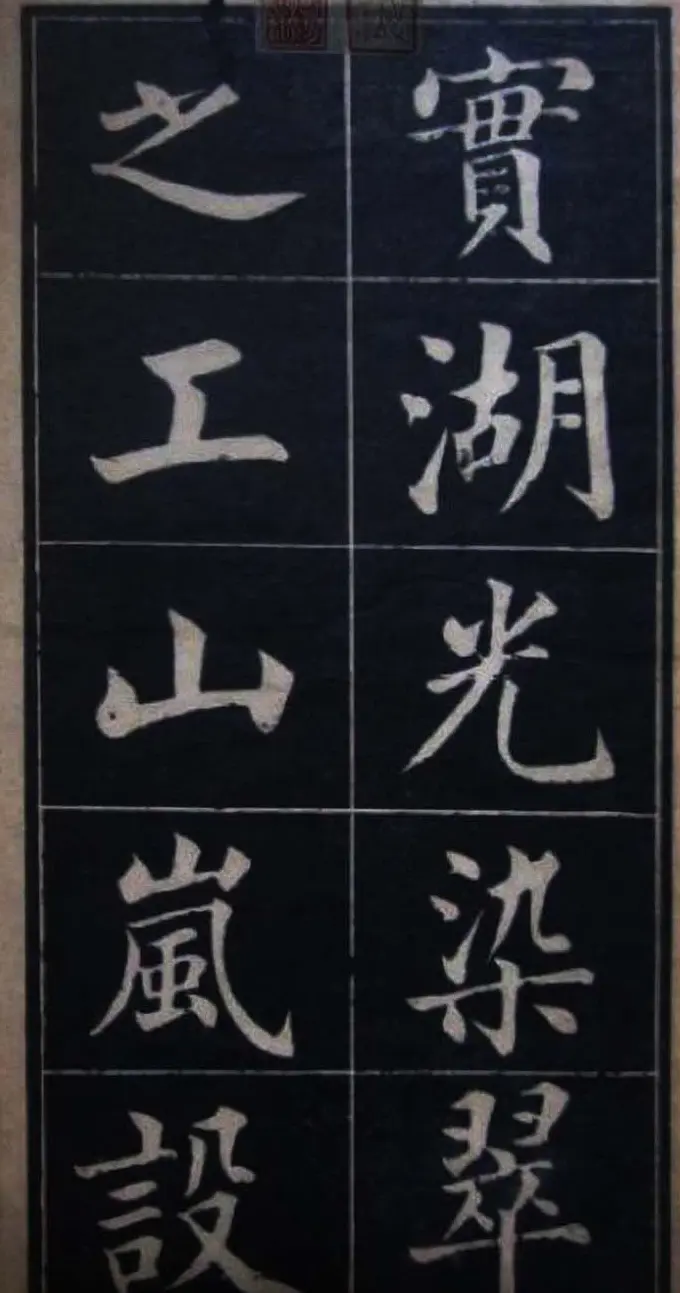 實湖光染翠
之工山嵐設